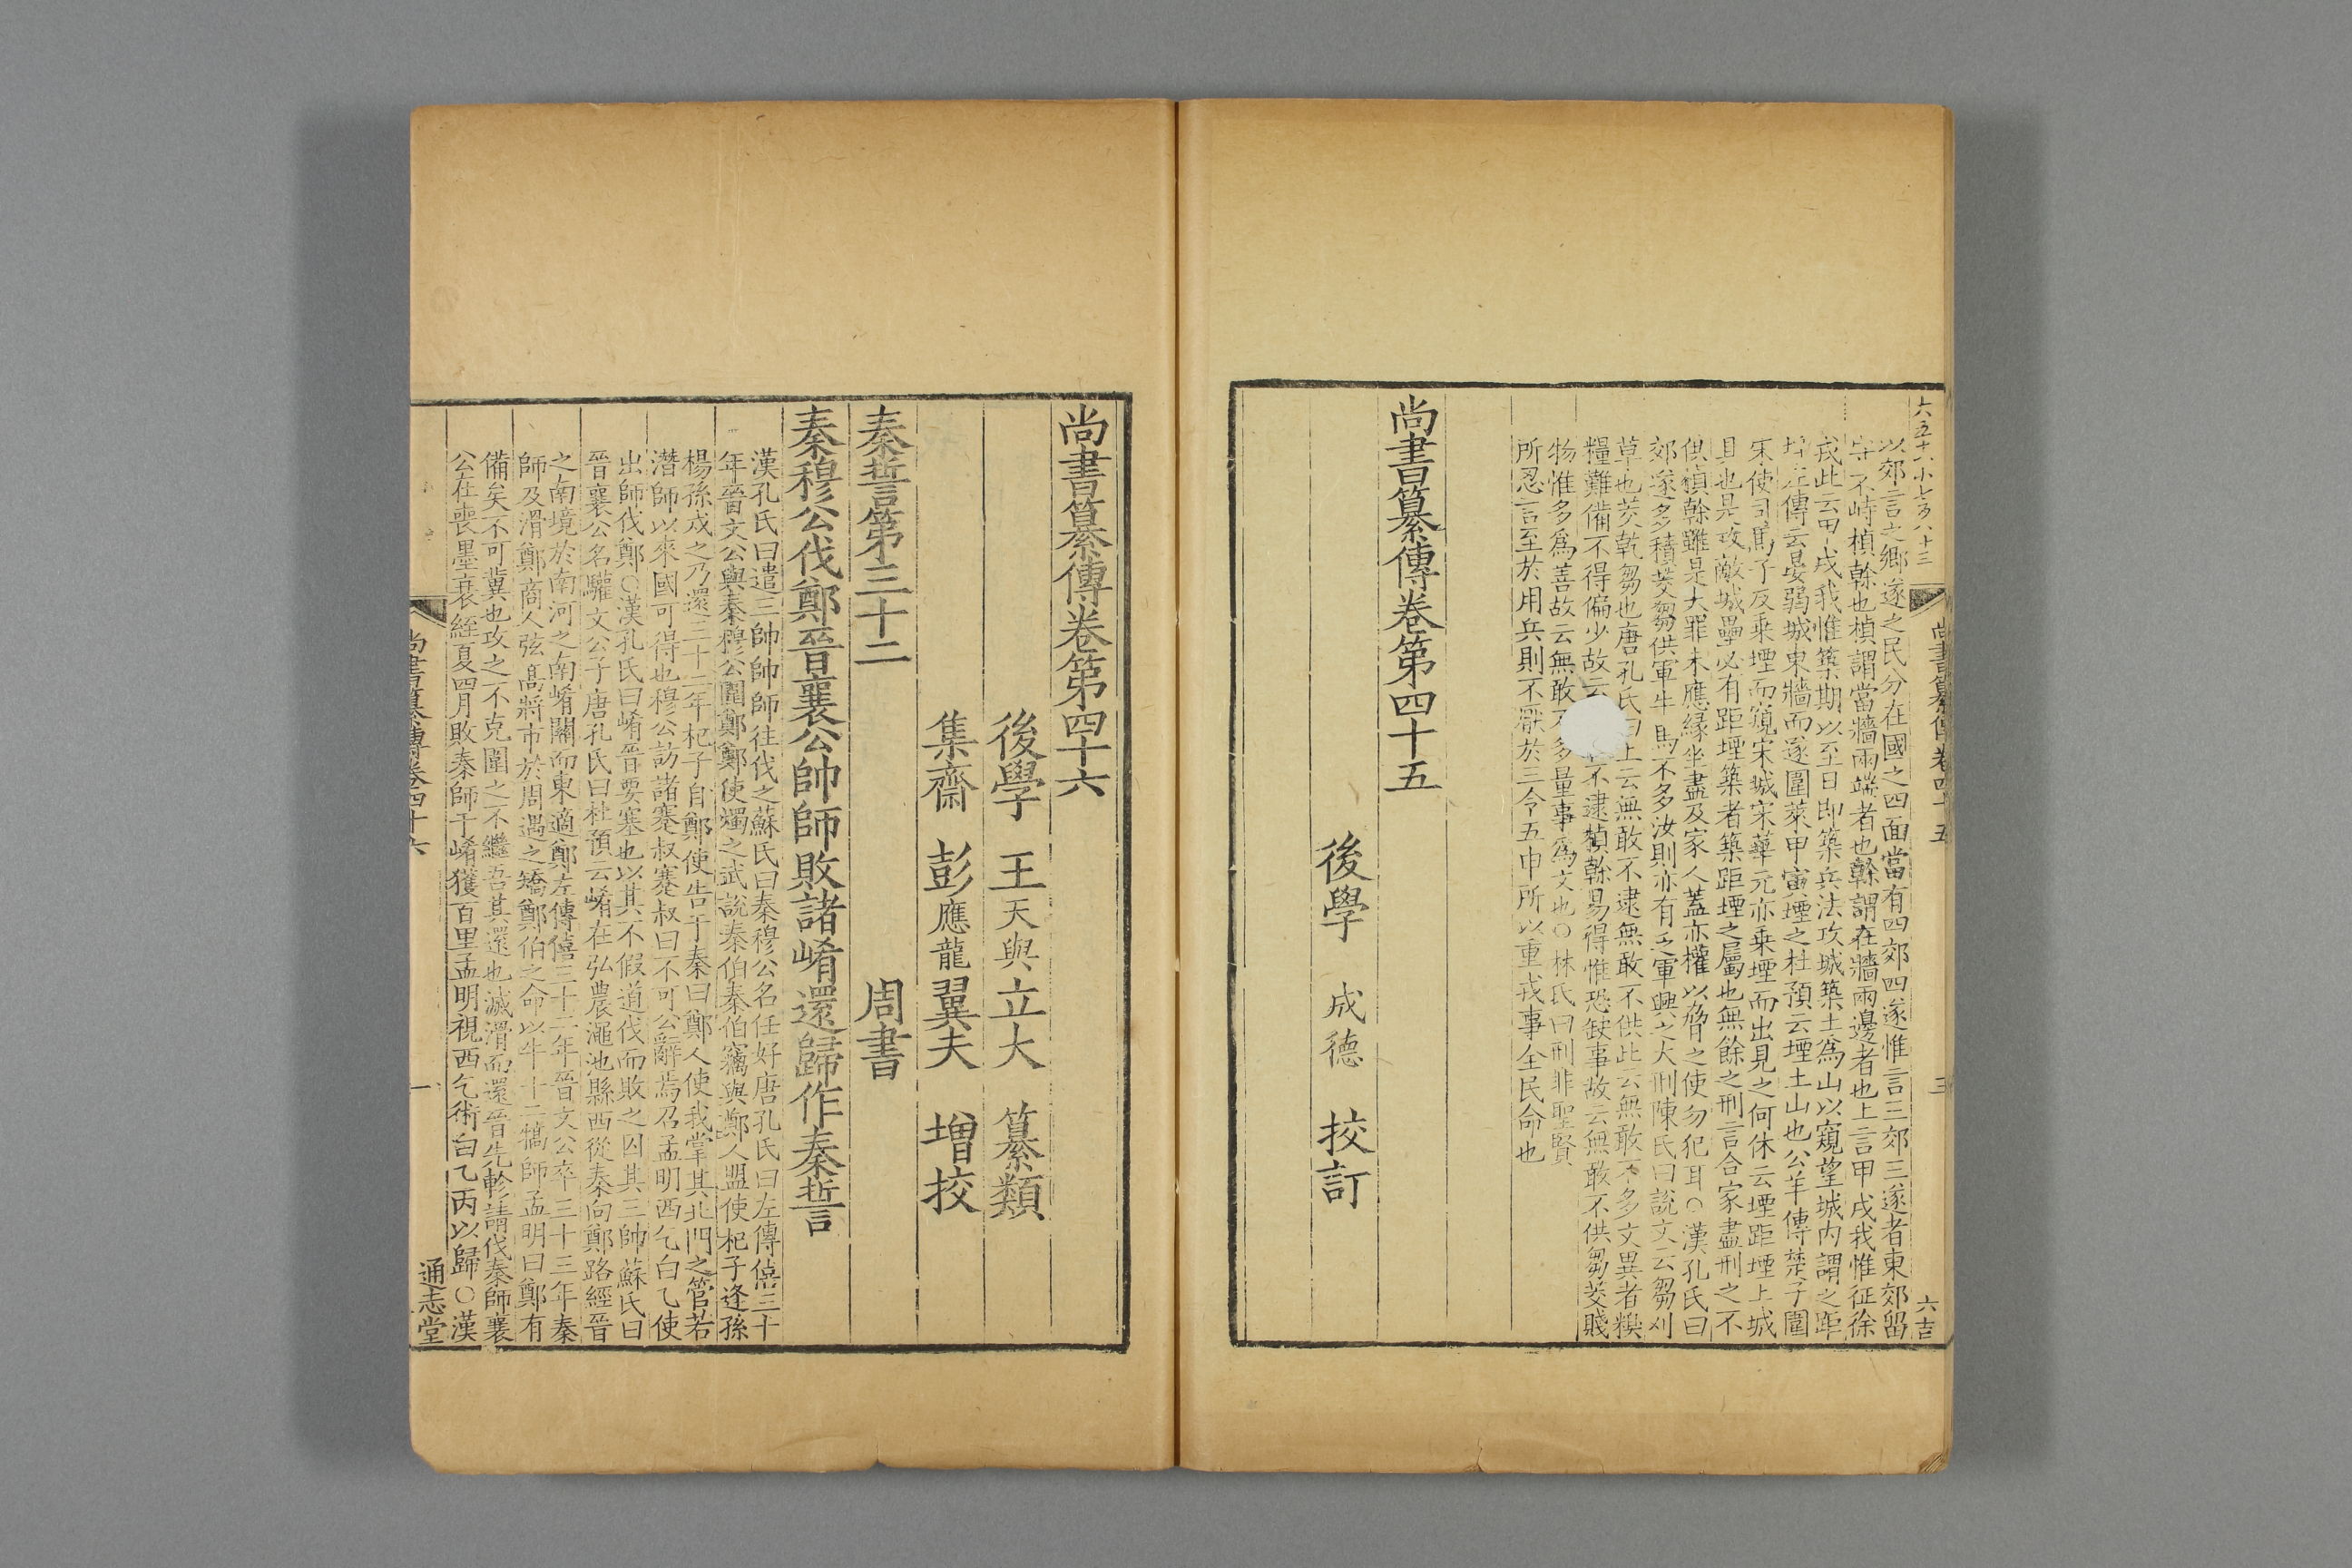 以郊言之鄉遂之民分在國之四面當有四郊四遂惟言三郊三遂者東郊留
守不峙楨榦也楨謂當牆兩端者也榦謂在牆兩邊者也上言甲戌我惟征徐
戎此云甲戌我惟築期以至日即築兵法攻城築土爲山以窺望城內謂之距
堙左傳云晏弱城東牆而遂圍萊甲寅堙之杜預云堙土山也公羊傳楚子圍
宋使司馬子反乗堙而窺宋城宋華元亦乗堙而出見之何休云堙距堙上城
具也是攻敵城壘必有距堙築者築距堙之屬也無餘之刑言合家盡刑之不
供楨榦雖是大罪未應緣坐盡及家人蓋亦權以脅之使勿犯耳○漢孔氏曰
郊遂多積茭芻供軍牛馬不多汝則亦有乏軍興之大刑陳氏曰說文云芻刈
草也茭乾芻也唐孔氏曰上云無敢不逮無敢不供此云無敢不多文異者糗
糧難備不得偏少故云不逮楨榦易得惟恐缺事故云無敢不供芻茭賤
物惟多爲善故云無敢不多量事爲文也○林氏曰刑非聖賢
所忍言至於用兵則不厭於三令五申所以重戎事全民命也
尚書纂傳卷第四十五
後學 成德 挍訂
尚書纂傳卷四十五
三
尚書纂傳卷第四十六
後學 王天與立大 纂類
集齋 彭應龍翼夫 增挍
秦誓第三十二 周書
秦穆公伐鄭晉襄公帥師敗諸崤還歸作秦誓
漢孔氏曰遣三帥帥師往伐之蘇氏曰秦穆公名任好唐孔氏曰左傳僖三十
年晉文公與秦穆公圍鄭鄭使燭之武說秦伯秦伯竊與鄭人盟使杞子逢孫
楊孫戍之乃還三十二年杞子自鄭使告于秦曰鄭人使我掌其北門之管若
潛師以來國可得也穆公訪諸蹇叔蹇叔曰不可公辭焉召孟明西乞白乙使
出師伐鄭○漢孔氏曰崤晉要塞也以其不假道伐而敗之囚其三帥蘇氏曰
晉襄公名驩文公子唐孔氏曰杜預云崤在弘農澠池縣西從秦向鄭路經晉
之南境於南河之南崤關而東適鄭左傳僖三十二年晉文公卒三十三年秦
師及滑鄭商人弦高將市於周遇之矯鄭伯之命以牛十二犒師孟明曰鄭有
備矣不可冀也攻之不克圍之不繼吾其還也滅滑而還晉先軫請伐秦師襄
公在喪墨衰絰夏四月敗秦師于崤獲百里孟明視西乞術白乙丙以歸○漢
尚書纂傳卷四十六
一
通志堂